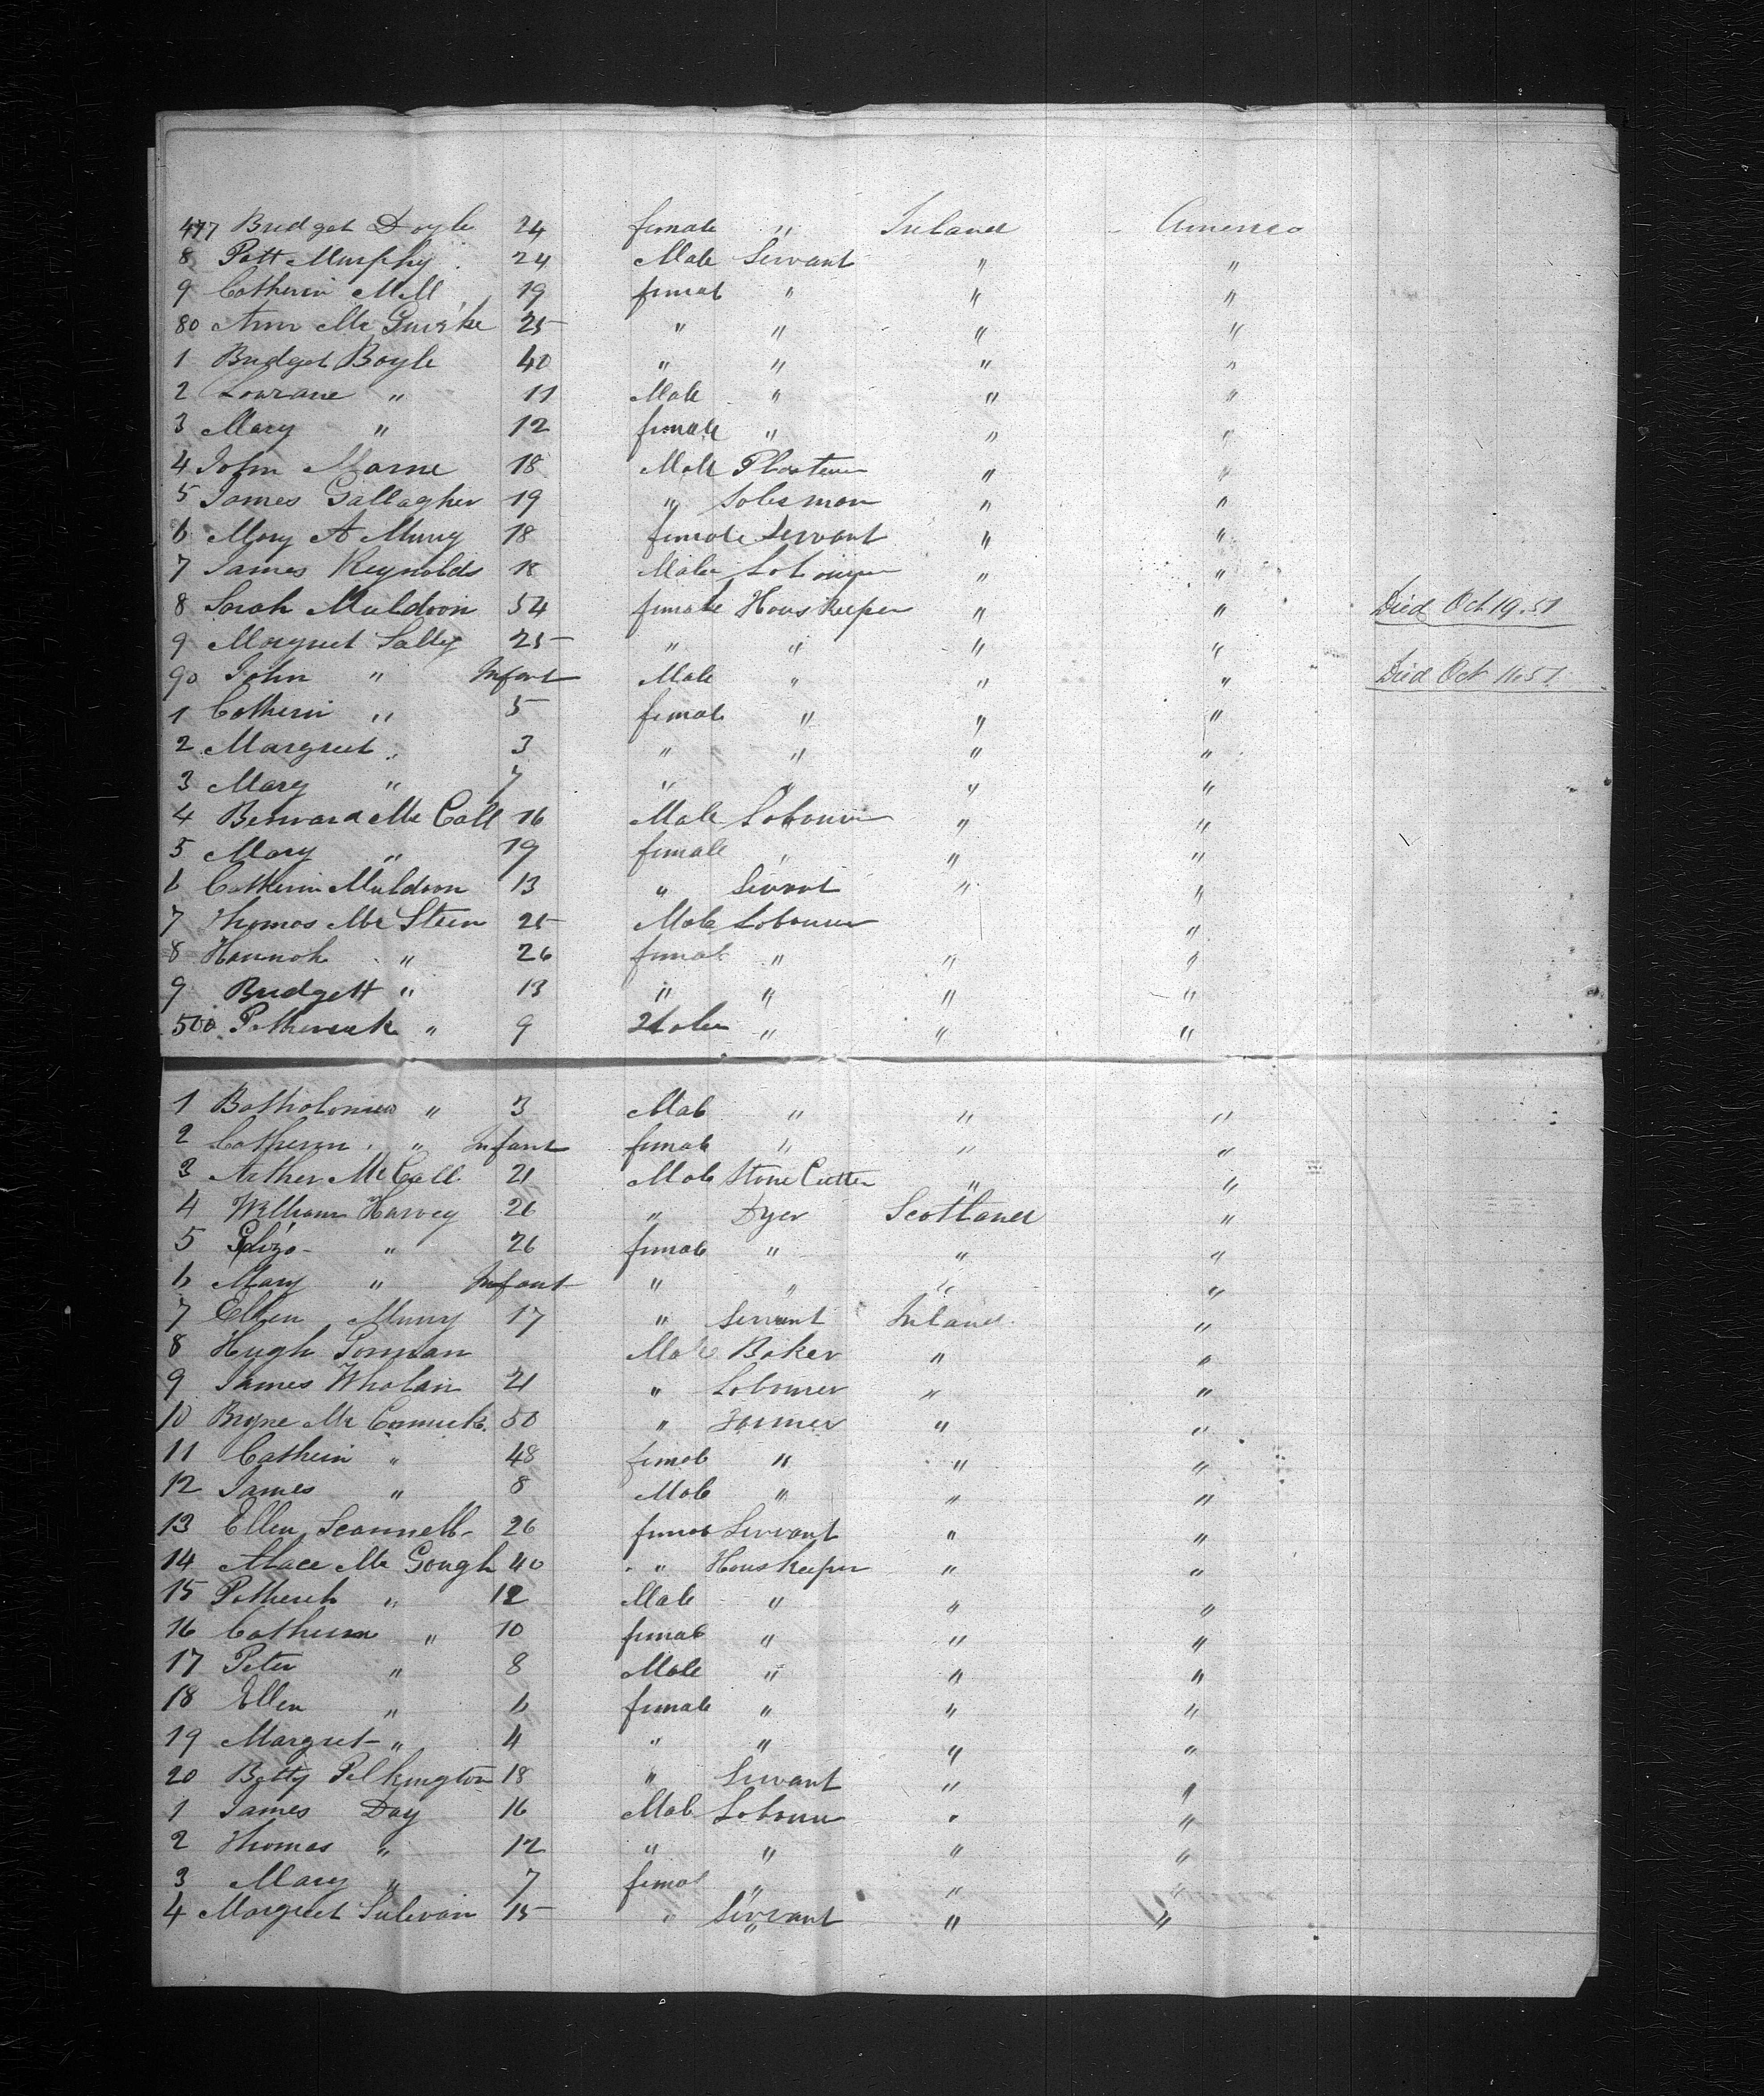 477 Bridget Doyle 24 female " Ireland America
8 Patt Murphy 24 Male Servant " "
9 Catherin 19 female " " "
80 Ann Mc 25 " " " "
1 Bridget Boyle 40 " " " "
2 " 11 Male " " "
3 Mary " 12 female " " "
4 John 18 Male " "
5 James Gallagher 19 " Salesman " "
6 Mary A Murry 18 female Servant " "
7 James Reynolds 18 Male Labourer " "
8 Sarah Muldoon 54 female Hous Keeper " " Died Oct 19.51
9 Margret 25 " " " "
90 John " Infant Male " " " Died Oct 11.51
1 Catherin " 5 female " " "
2 Margret " 3 " " " "
3 Mary " 7 " " " "
4 Bernard Mc Call 16 Male Labourer " "
5 Mary " 19 female " " "
6 Catherin Muldoon 13 " Servant " "
7 Thomas Mc Steen 25 Male Labourer "
8 Hannah " 26 female " " "
9 Bridgett " 13 " " " "
500 Patherick " 9 Male " " "
1 Batholomew " 3 Male " " "
2 Catherin " Infant female " " "
3 Arther Mc Call 21 Male Stone Cutter " "
4 William Harvey 26 " Dyer Scotland "
5 Eliza " 26 female " " "
6 Mary " Infant " " " "
7 Ellen Murry 17 " Servant Ireland "
8 Hugh Gorman Male Baker " "
9 James Wholan 21 " Labourer " "
10 Bryne Mc Cormick 50 " Farmer " "
11 Catherin " 48 female " " "
12 James " 8 Male " " "
13 Ellen Scannell 26 female Servant " "
14 Alace Mc Gough 40 " Hous Keeper " "
15 Patherick " 12 Male " " "
16 Catherin " 10 female " " "
17 Peter " 8 Male " " "
18 Ellen " 6 female " " "
19 Margret " 4 " " " "
20 Betty Pelkington 18 " Servant " "
1 James Day 16 Male Labourer " "
2 Thomas " 12 " " " "
3 Mary " 7 female " " "
4 Margret Sulevan 15 " Servant " "